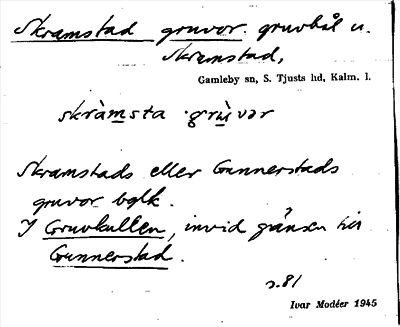 Skramstad gruvor. gruvhål u.
Skramstad,
Gamleby sn, S. Tjusts hd, Kalm. l.
skràmsta ·grùvər
Skramstads eller Gunnerstads
gruvor bglk.
I Gruvkullen, invid gränsen till
Gunnerstad.
s. 81
Ivar Modéer 1945